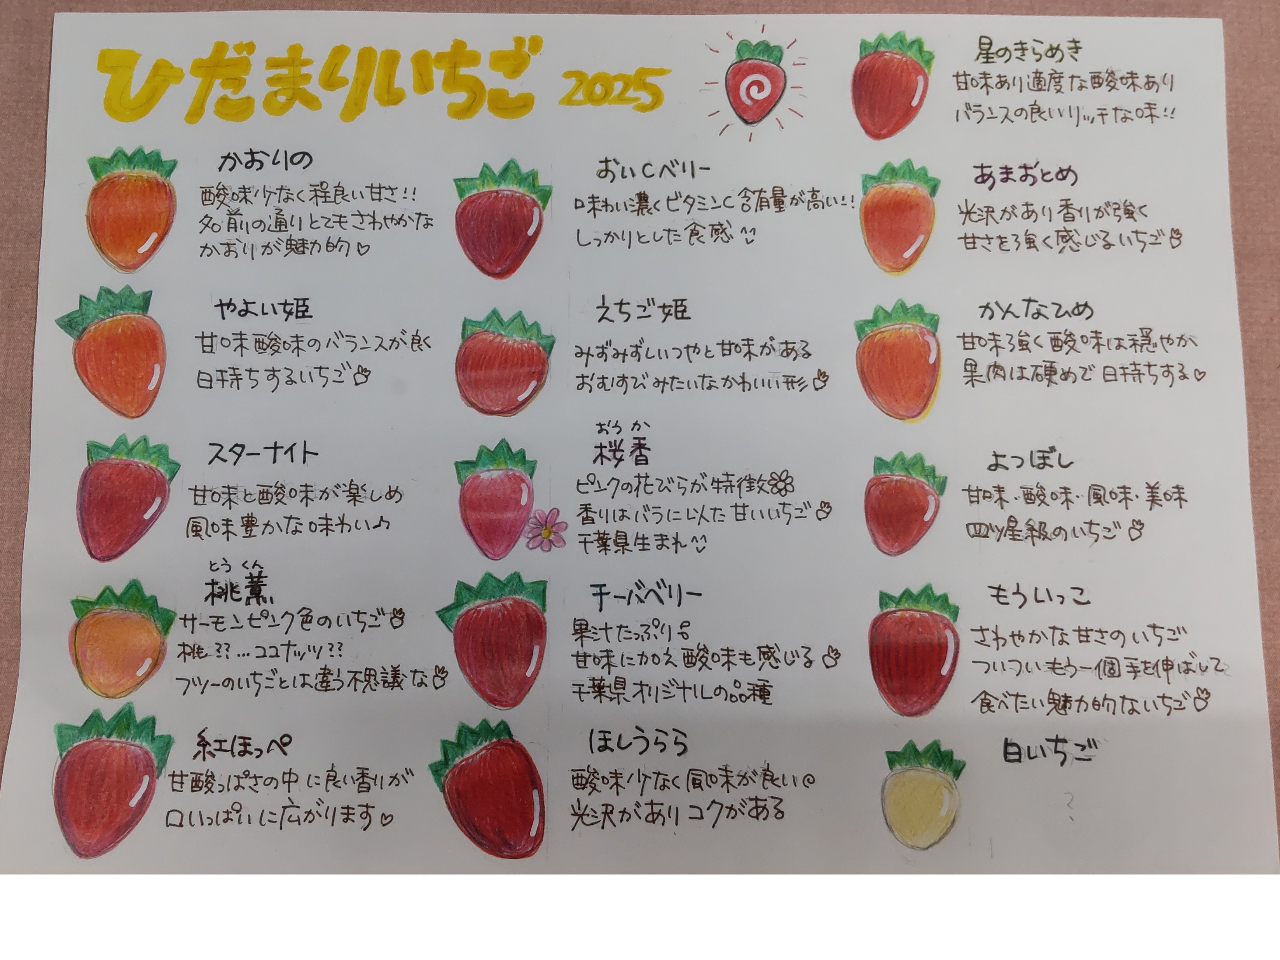 ひだまりいちご 2025
星のきらめき
甘味あり適度な酸味あり
バランスの良いリッチな味!!
かおりの
酸味少なく程良い甘さ!!
名前の通りとてもさわやかな
かおりが魅力的♡
おいCベリー
味わい濃くビタミンC含有量が高い!!
しっかりとした食感
あまおとめ
光沢があり香りが強く
甘さを強く感じるいちご
やよい姫
甘味酸味のバランスが良く
日持ちするいちご
えちご姫
みずみずしいつやと甘味がある
おむすびみたいなかわいい形
かんなひめ
甘味強く酸味は穏やか
果肉は硬めで日持ちする♡
スターナイト
甘味と酸味が楽しめ
風味豊かな味わい♪
おう か
桜香
ピンクの花びらが特徴
香りはバラに似た甘いいちご
千葉県生まれ
よつぼし
甘味・酸味・風味・美味
四ツ星級のいちご
とう くん
桃薫
サーモンピンク色のいちご
桃??…ココナッツ??
フツーのいちごとは違う不思議な
チーバベリー
果汁たっぷり
甘味に加え酸味も感じる
千葉県オリジナルの品種
もういっこ
さわやかな甘さのいちご
ついついもう一個手を伸ばして
食べたい魅力的ないちご
紅ほっぺ
甘酸っぱさの中に良い香りが
口いっぱいに広がります♡
ほしうらら
酸味少なく風味が良い
光沢がありコクがある
白いちご
?